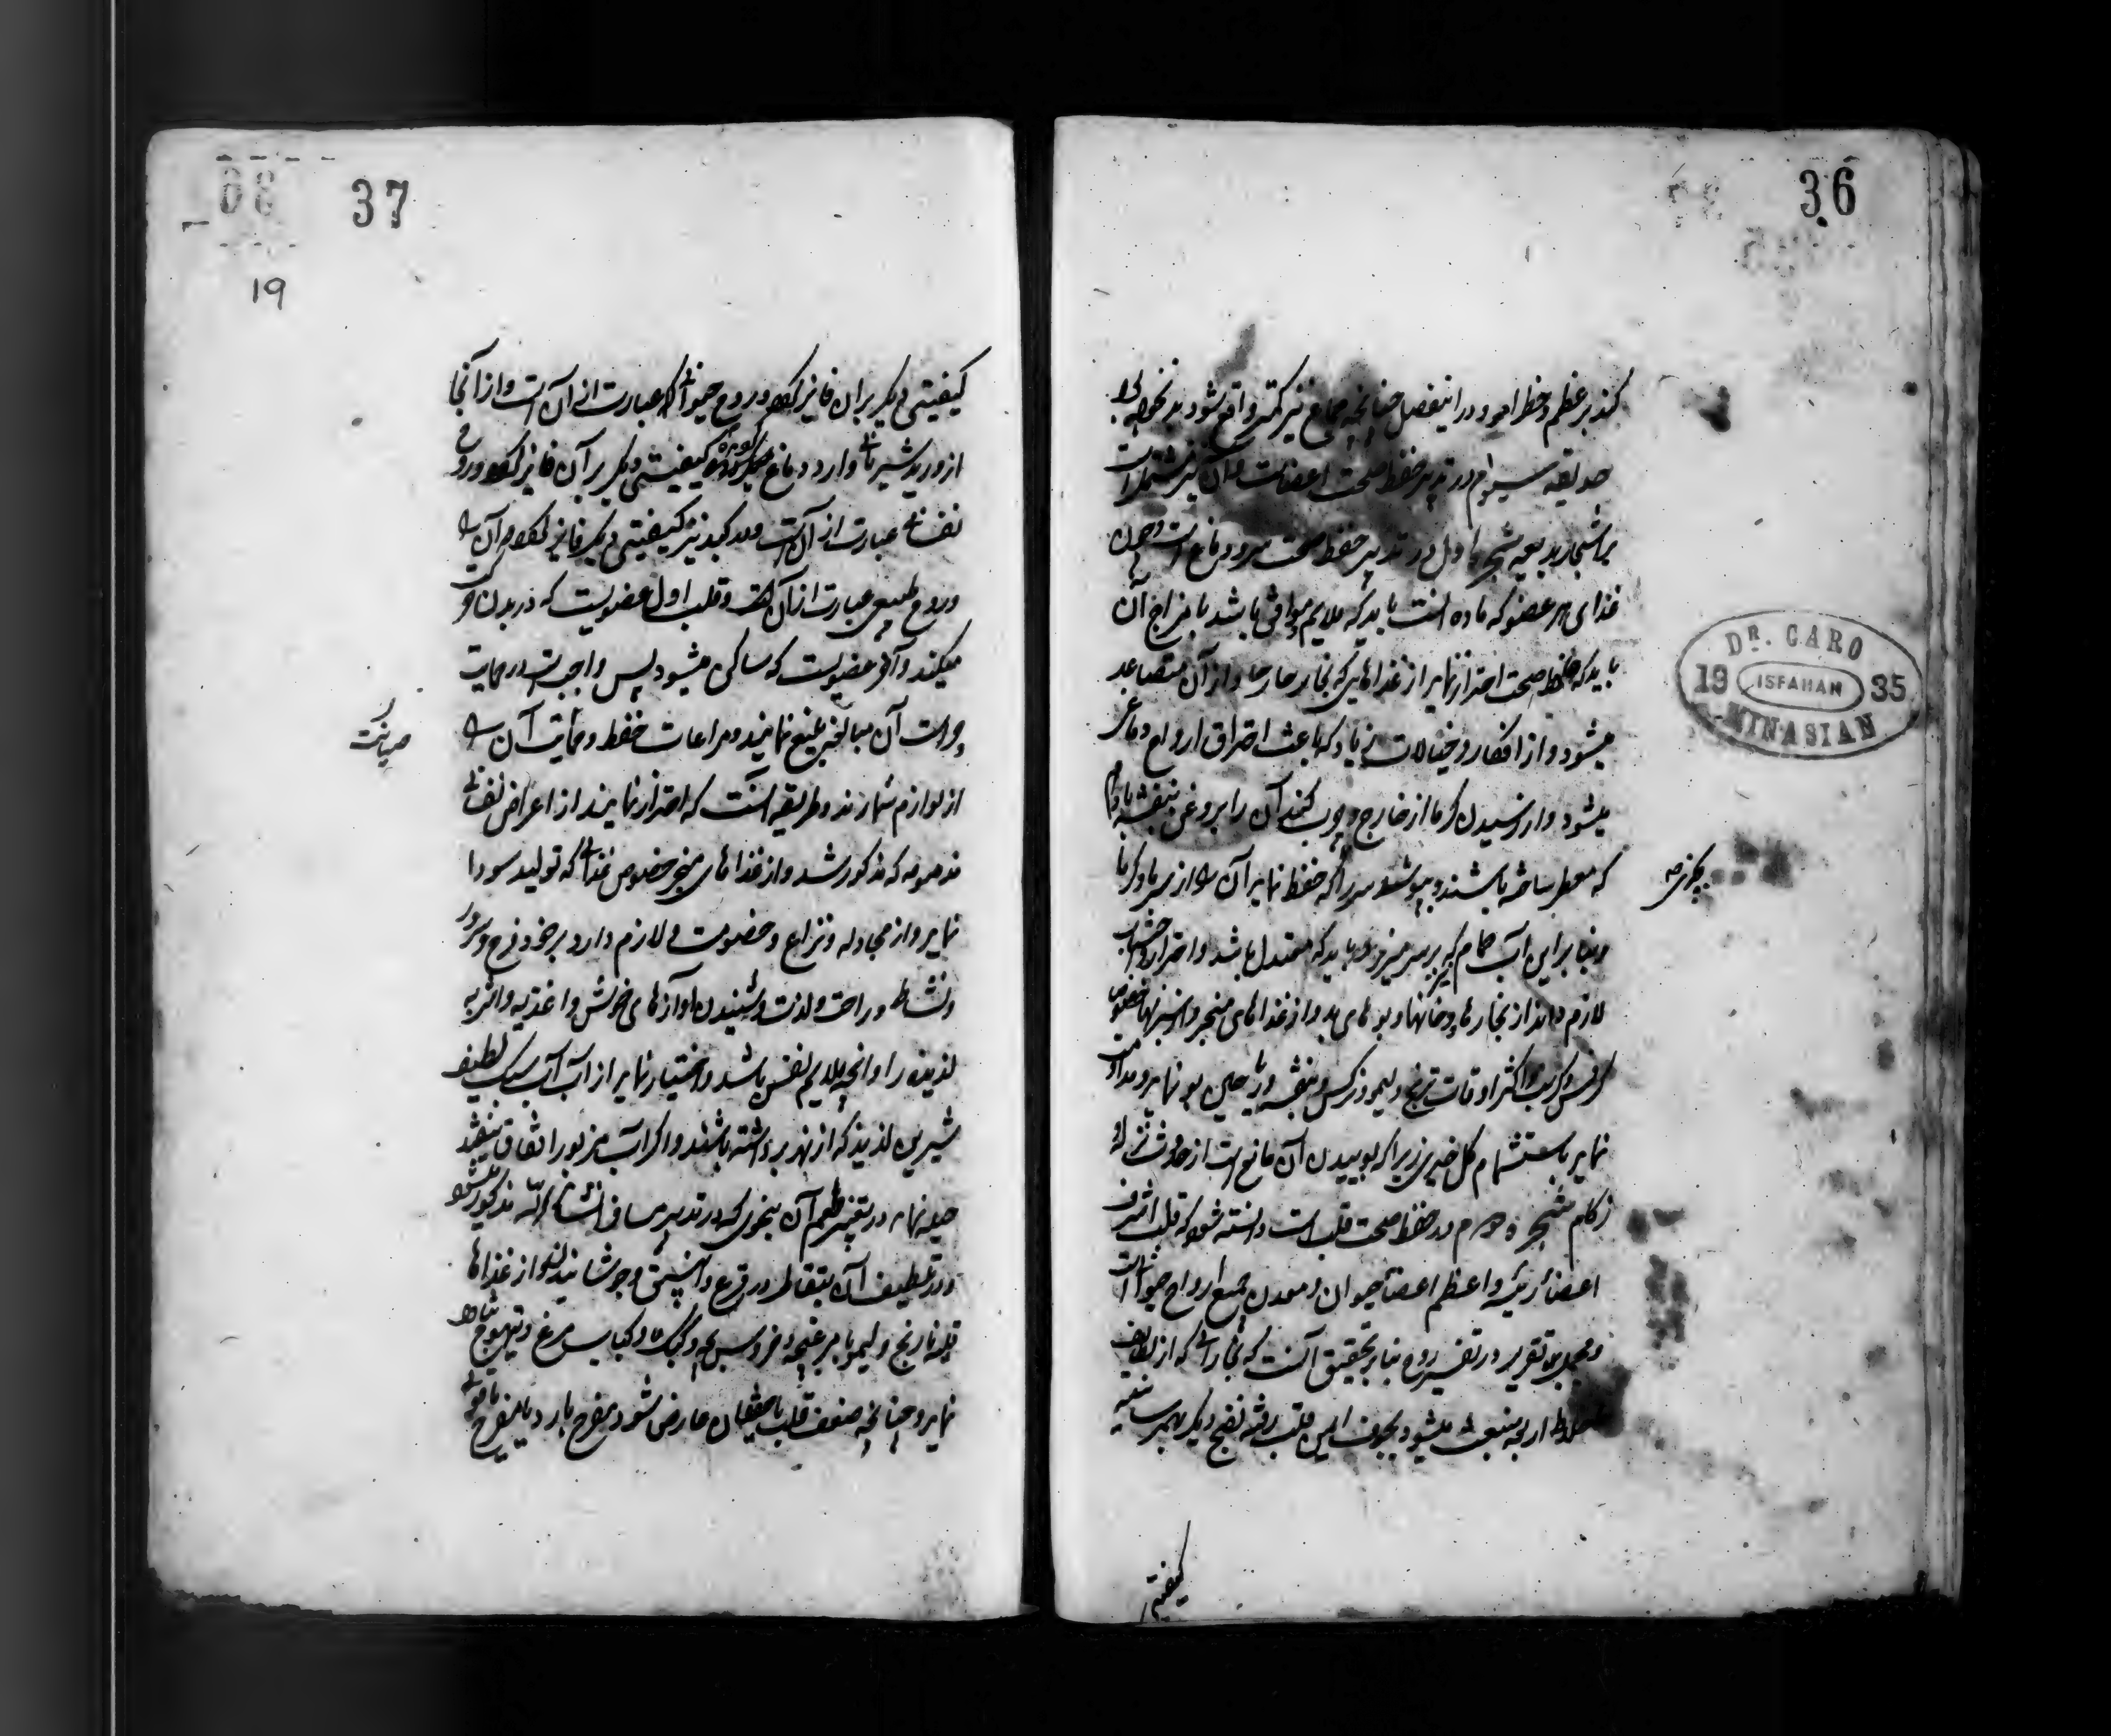 36
کند بر عظم و خطر بود و در اینفصل چنانچه جماع نیز کمتر واقع شود بد نخواهد بود
حدیقه سیوم در تدبیر حفظ صحت اعضاست و آن نیز مشتمل است
بر اشجار بدیعه شجره اول در تدبیر حفظ صحت سر و دماغ است و چون
غذای هر عضو که ماده آنست باید که ملایم و موافق باشد با مزاج آن
باید که حافظ صحت احتراز نماید از غذاهایی که بخار حار حاد از آن متصاعد
میشود و از افکار و خیالات زیاد که باعث احتراق ارواح دماغی
میشود و از رسیدن گرما از خارج و چرب کنند آن را بروغن بنفشه بادام
که معطر ساخته باشند و بپوشند سر را که حفظ نماید آن را از سرما و گرما
و بنابراین آب حمام که بر سر میریزد باید که معتدل باشد و احتراز و اجتناب
لازم داند از بخارها و دخانها و بوهای بد و از غذاهای مبخر و از سبزیها خصوص
کرفس و کرنب و اکثر اوقات ترنج و لیمو و نرگس و بنفشه و ریاحین بو نماید و مداومت
نماید باستشمام گل خیری زیرا که بوییدن آن مانع است از حدوث نزله و
زکام شجره دوم در حفظ صحت قلب است دانسته شود که قلب اشرف
اعضاء رئیسه و اعظم اعضاء حیوان و معدن جمیع ارواح حیوانی است
و مجمل تقریر در تفسیر روح بنابر تحقیق آنست که بخاراتی که از لطایف
اخلاط اربعه منبعث میشود بجوف ایسر قلب رفته نضج دیگر بهم رسانیده
کیفیتی
DR. CARO
19 ISFAHAN 35
MINASIAN
37
19
کیفیتی دیگر بر آن فایز گردد و روح حیوانی که عبارت از آن است و از آنجا
از ورید شریانی وارد دماغ گردیده کیفیتی دیگر بر آن فایز گردد و روح
نفسانی عبارت از آن است و در کبد نیز کیفیتی دیگر فایز گردد و آن را
و روح طبیعی عبارت از آن است و قلب اول عضویست که در بدن حرکت
میکند و آخر عضویست که ساکن میشود پس واجب است در حمایت
و حراست آن مبالغه بلیغ نمایند و مراعات حفظ و حمایت آن را
صیانت
از لوازم شمارند و طریقه آنست که احتراز نمایند از اعراض نفسانی
مذمومه که مذکور شد و از غذاهای مبخر خصوص غذایی که تولید سودا
نماید و از مجادله و نزاع و خصومت و لازم دارد بر خود فرح و سرور
و نشاط و راحت و لذت و شنیدن آوازهای خوش و اغذیه و اشربه
لذیذه را و آنچه ملایم نفس باشد و اختیار نماید از آب آب سبک لطیف
شیرین لذیذ که از نهر برداشته باشند و اگر آب مزبور اتفاق نیفتد
حیله نماید در تغییر طعم آن بنحوی که در تدبیر مسافر انشاء الله مذکور میشود
و در تلطیف آن بتقاطر در قرع و انبیق و جوشانیدن و از غذاها
قلیه نارنج و لیمو با بره و خروس بچه و کبک و کباب مرغ و تیهو
نماید و چنانچه ضعف قلب یا خفقان عارض شود مفرح بارد یا مفرح یاقوتی